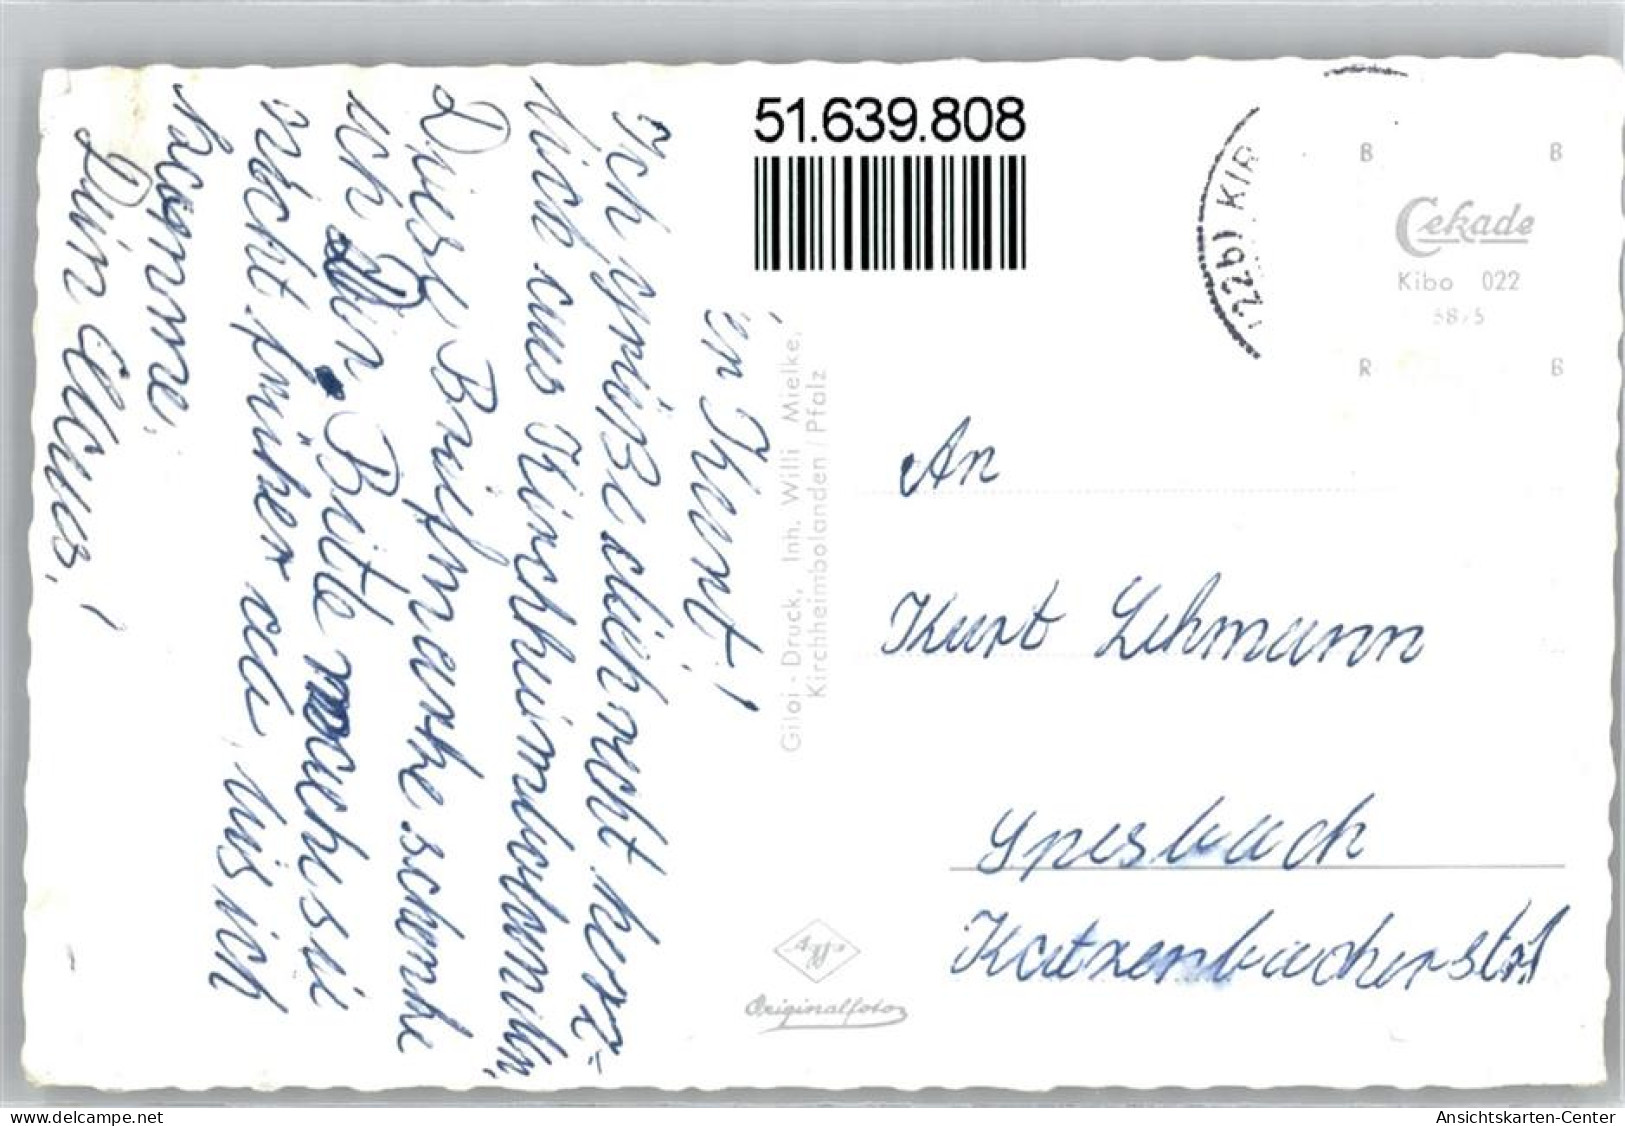 51.639.808
(22b) KIR
B B
Cekade
Kibo 022
58/5
R B
Kurt!
Ich grüße dich recht herz-
lich aus Kirchheimbolanden,
Diese Briefmarke schenke
ich Dir. Bitte
nicht früher ab, bis ich
komme.
Dein Claus!
Giloi - Druck, Inh. Willi Mielke,
Kirchheimbolanden / Pfalz
An
Kurt Lehmann
Spesbach
Katzenbacherstr
Agfa
Originalfoto
oldthing.com
Ansichtskarten-Center